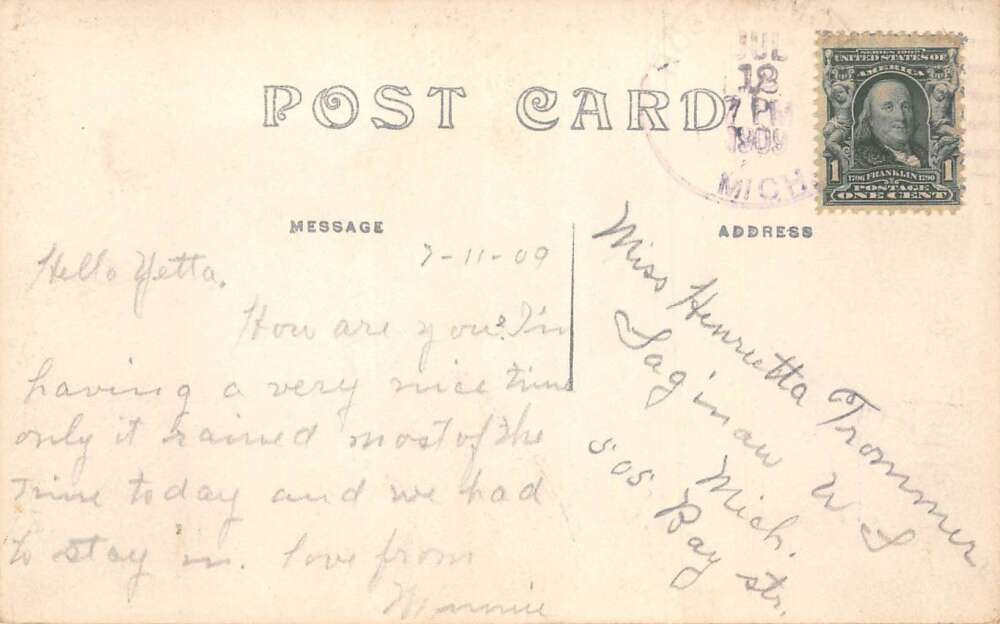 POST CARD
JUL
12
7 PM
1909
MICH.
SERIES 1902
UNITED STATES OF
AMERICA
1706 FRANKLIN 1790
1 POSTAGE 1
ONE CENT
MESSAGE
7-11-09
Hello Yetta.
How are you? I'm
having a very nice time
only it rained most of the
time today and we had
to stay in. love from
Minnie
ADDRESS
Miss Henrietta Trommer
Saginaw W S
Mich.
505 Bay str.